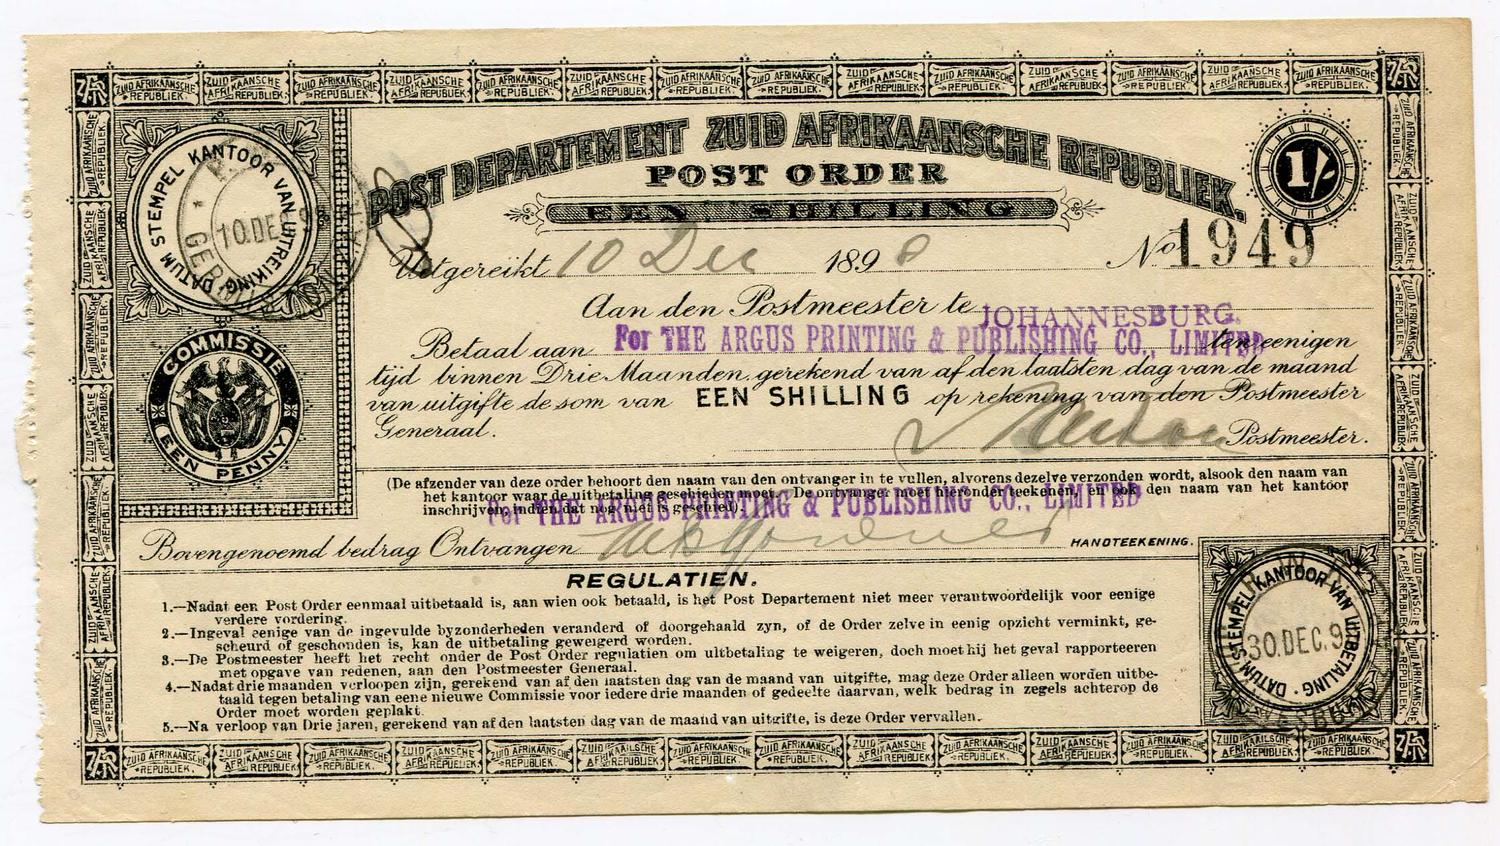 POST DEPARTEMENT ZUID AFRIKAANSCHE REPUBLIEK.
POST ORDER
EEN SHILLING
1/-
DATUM STEMPEL KANTOOR VAN UITREIKING
10.DEC.98
COMMISSIE
EEN PENNY
Uitgereikt 10 Dec 1898
No 1949
Aan den Postmeester te JOHANNESBURG.
Betaal aan For THE ARGUS PRINTING & PUBLISHING CO., LIMITED ten eenigen
tijd binnen Drie Maanden gerekend van af den laatsten dag van de maand
van uitgifte de som van EEN SHILLING op rekening van den Postmeester
Generaal.
Postmeester.
(De afzender van deze order behoort den naam van den ontvanger in te vullen, alvorens dezelve verzonden wordt, alsook den naam van
het kantoor waar de uitbetaling geschieden moet. De ontvanger moet hieronder teekenen, en ook den naam van het kantoor
inschrijven, indien dat nog niet is geschied).
For THE ARGUS PRINTING & PUBLISHING CO., LIMITED
Bovengenoemd bedrag Ontvangen
HANDTEEKENING.
REGULATIEN.
1.—Nadat een Post Order eenmaal uitbetaald is, aan wien ook betaald, is het Post Departement niet meer verantwoordelijk voor eenige
verdere vordering.
2.—Ingeval eenige van de ingevulde byzonderheden veranderd of doorgehaald zyn, of de Order zelve in eenig opzicht verminkt, ge-
scheurd of geschonden is, kan de uitbetaling geweigerd worden.
3.—De Postmeester heeft het recht onder de Post Order regulatien om uitbetaling te weigeren, doch moet hij het geval rapporteeren
met opgave van redenen, aan den Postmeester Generaal.
4.—Nadat drie maanden verloopen zijn, gerekend van af den laatsten dag van de maand van uitgifte, mag deze Order alleen worden uitbe-
taald tegen betaling van eene nieuwe Commissie voor iedere drie maanden of gedeelte daarvan, welk bedrag in zegels achterop de
Order moet worden geplakt.
5.—Na verloop van Drie jaren, gerekend van af den laatsten dag van de maand van uitgifte, is deze Order vervallen.
DATUM STEMPEL KANTOOR VAN UITBETALING
30.DEC.9
ZUID AFRIKAANSCHE REPUBLIEK.
ZAR